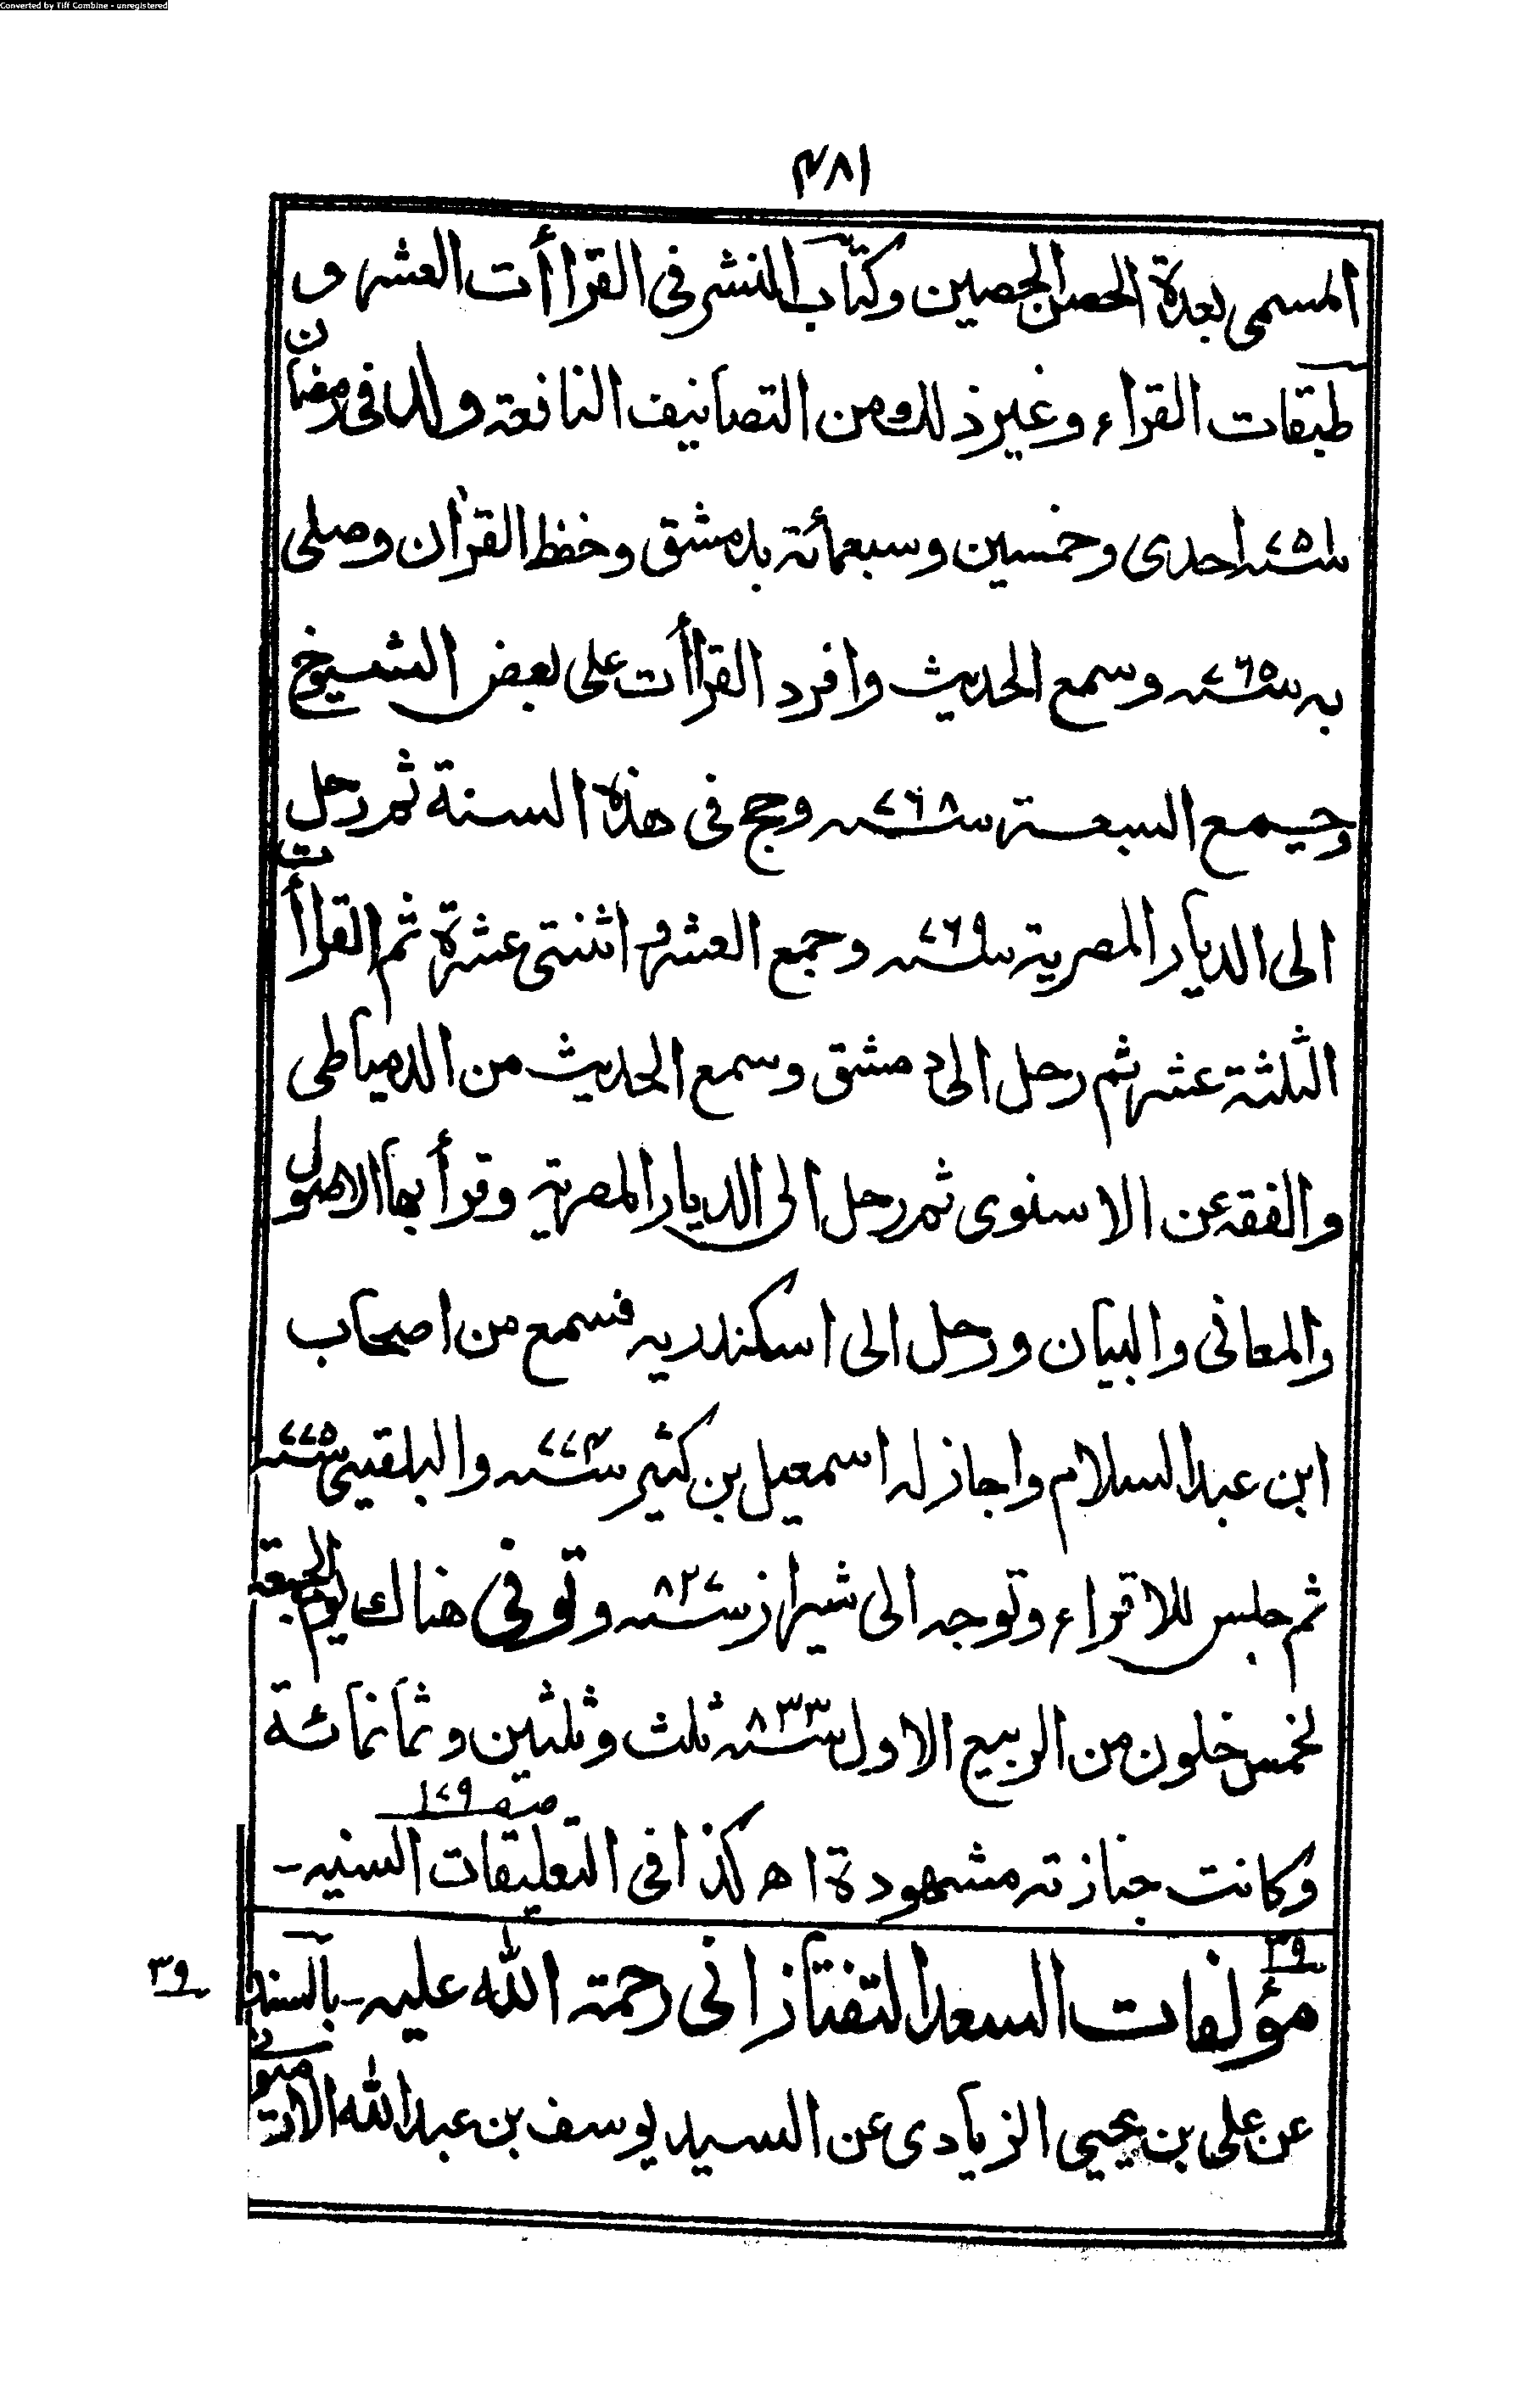 Converted by Tiff Combine - unregistered
۴۸۱
المسمى بعدة الحصن الحصين وكتاب النشر فى القراأت العشر و
طبقات القراء وغير ذلك ومن التصانيف النافعة ولد فى رمضان
سنه ۷۵۱ احدى وخمسين وسبعمائة بدمشق وحفظ القرأن وصلى
به سنه ۷۶۵ وسمع الحديث وافرد القراأت على بعض الشيوخ
وجمع السبعة سنه ۷۶۸ وحج فى هذه السنة ثم رحل
الى الديار المصرية سنه ۷۶۹ وجمع العشر و اثنتى عشرة ثم القراأت
الثلثة عشر ثم رحل الى دمشق وسمع الحديث من الدمياطى
والفقه عن الاسنوى ثم رحل الى الديار المصرية وقرأ بها الاصول
والمعانى والبيان ورحل الى اسكندريه فسمع من اصحاب
ابن عبد السلام واجاز له اسمعيل بن كثير سنه ۷۷۴ والبلقينى سنه ۷۷۵
ثم جلس للاقراء وتوجه الى شيراز سنه ۸۲۷ وتوفى هناك يوم الجمعة
لخمس خلون من الربيع الاول سنه ۸۳۳ ثلث وثلثين وثمانمائة
وكانت جنازته مشهودة اه كذا فى التعليقات السنيه - صفه ۱۷۹
۳۹
مؤلفات السعد التفتازانى رحمة الله عليه - بالسند
۳۹
عن على بن يحيى الزيادى عن السيد يوسف بن عبد الله